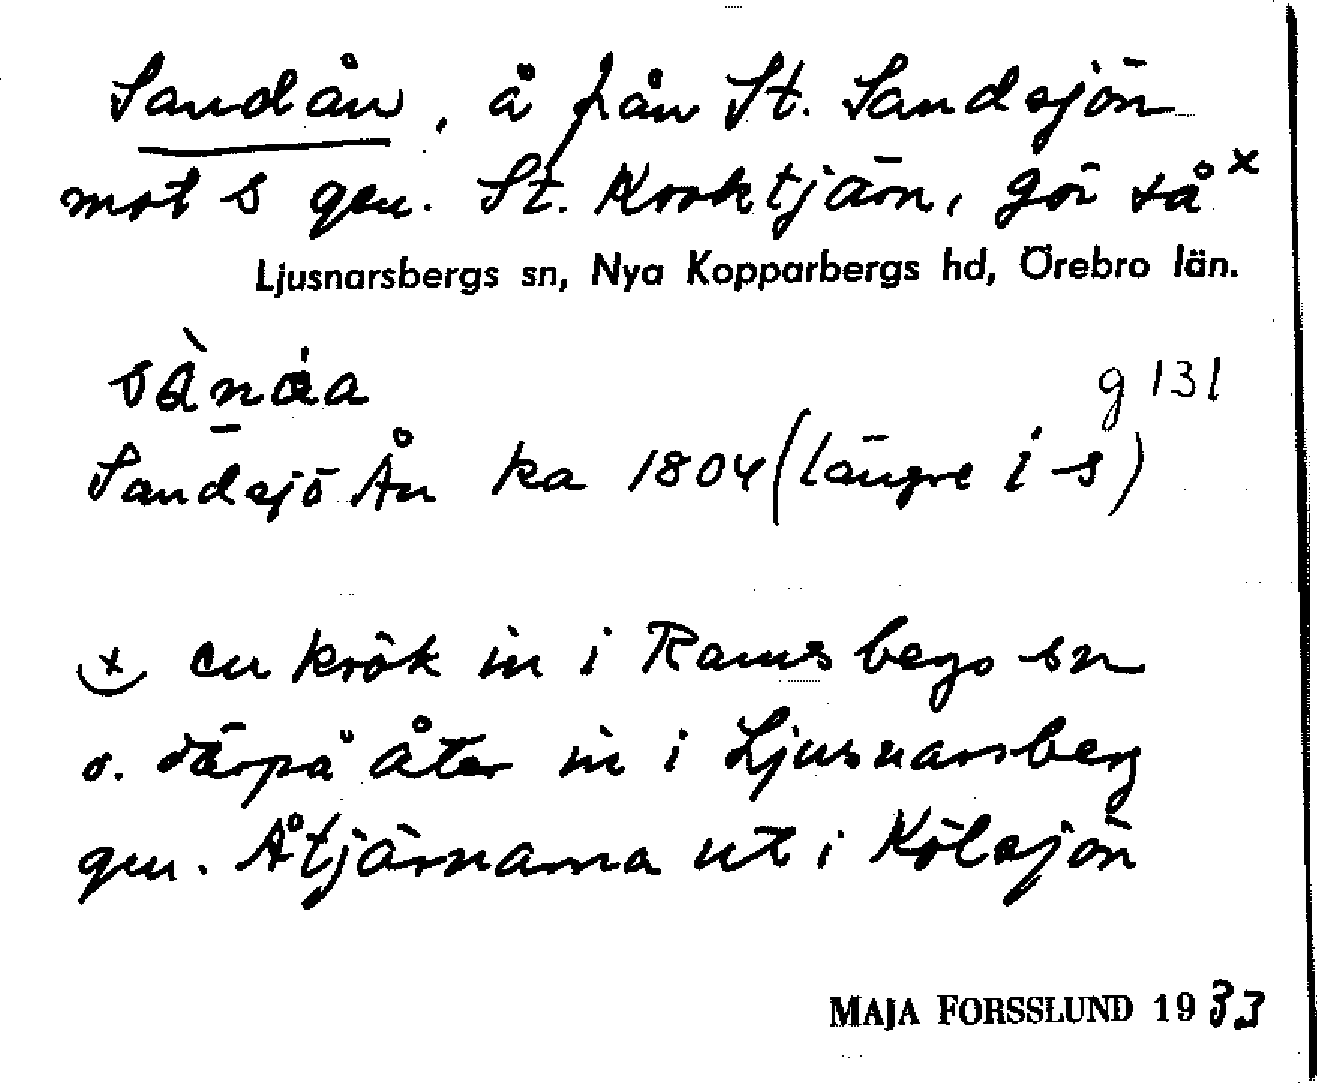 Sandån, å från St. Sandsjön
mot S gen. St. Kroktjärn, gör så x
Ljusnarsbergs sn, Nya Kopparbergs hd, Örebro län.
sànåa
g 131
Sandsjö Ån ka 1804 (längre i s)
x en krök in i Ramsbergs sn
o. därpå åter in i Ljusnarsberg
gen. Åtjärnarna ut i Kölsjön
MAJA FORSSLUND 1933